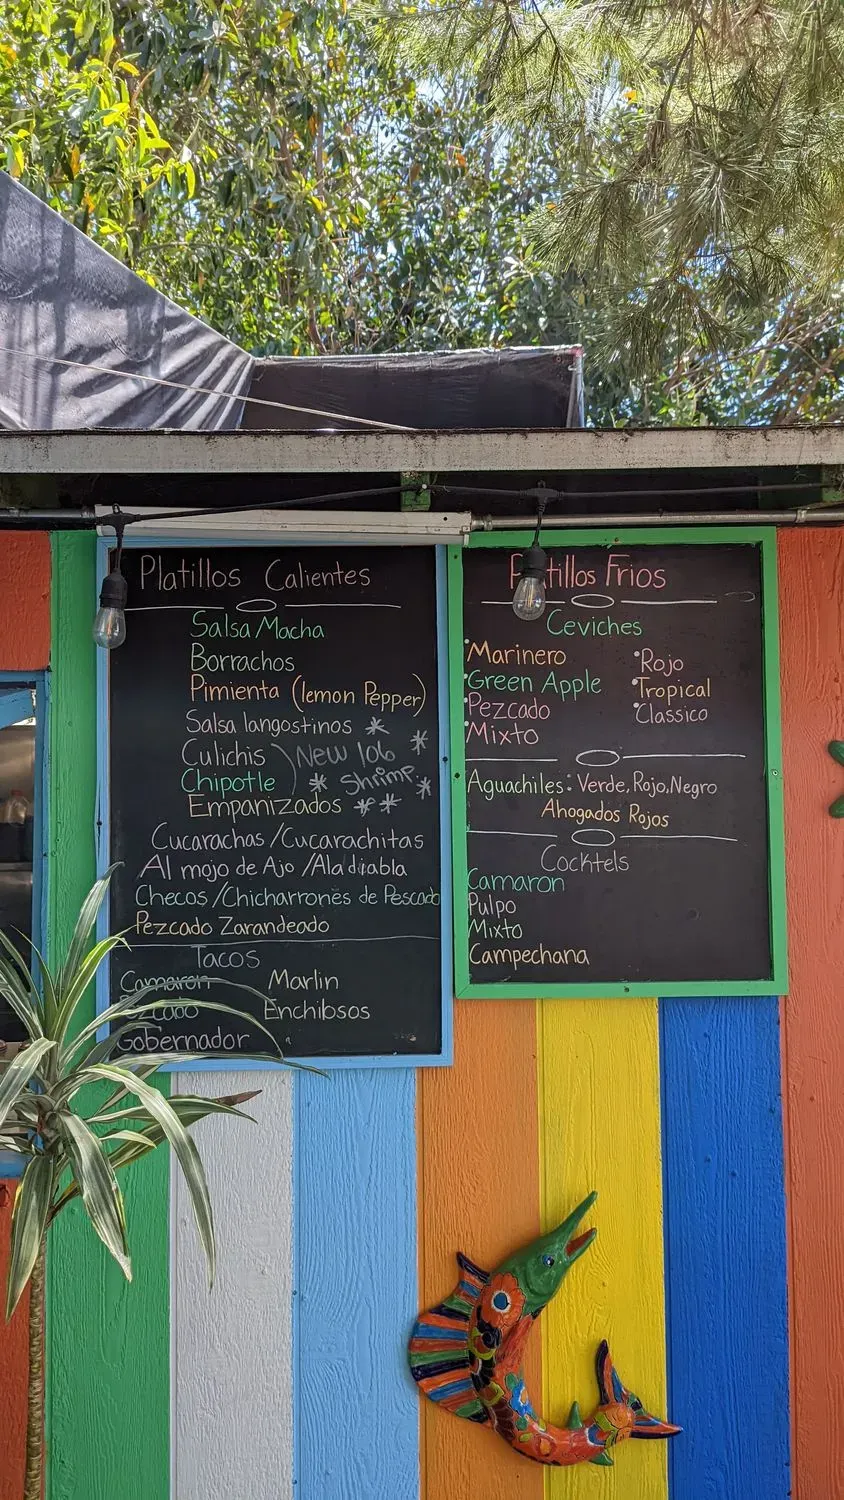 Platillos Calientes
Salsa Macha
Borrachos
Pimienta (lemon Pepper)
Salsa langostinos
Culichis
Chipotle
New 106
Shrimp
Empanizados
Cucarachas / Cucarachitas
Al mojo de Ajo / Ala diabla
Checos / Chicharrones de Pescado
Pezcado Zarandeado
Tacos
Camaron
Marlin
Pezcado
Enchilosos
Gobernador
Platillos Frios
Ceviches
Marinero
Rojo
Green Apple
Tropical
Pezcado
Classico
Mixto
Aguachiles: Verde, Rojo, Negro
Ahogados Rojos
Cocktels
Camaron
Pulpo
Mixto
Campechana